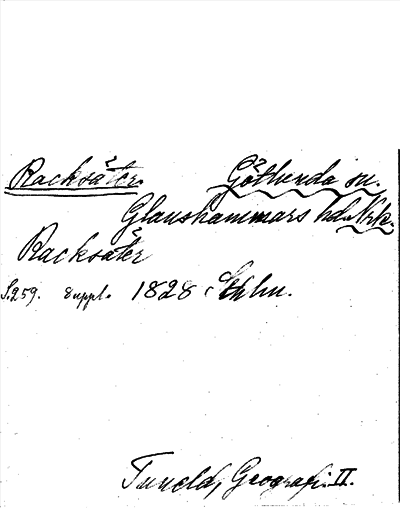 Racksäter. Götlunda sn.
Glanshammars hd. Nrk.
Racksäter
S. 259. Suppl. 1828 Sthlm.
Tuneld, Geografi. II.